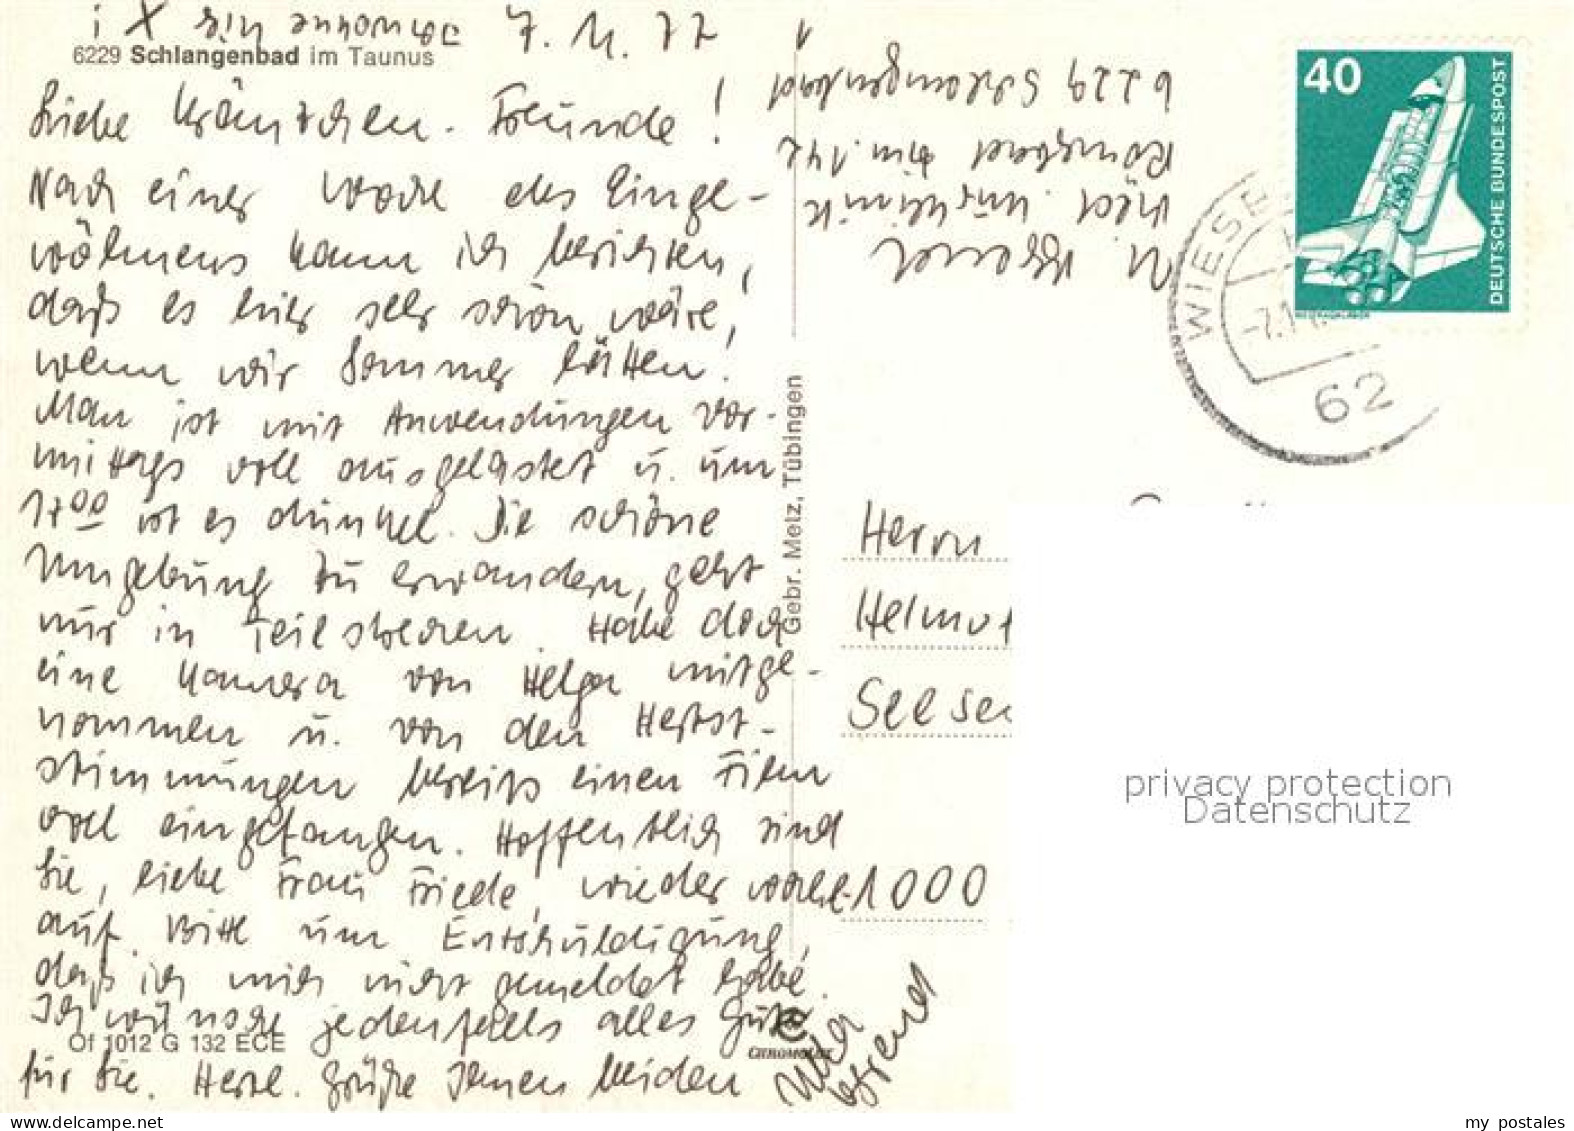 i X hier wohne
7. 11. 77
6229 Schlangenbad im Taunus
Liebe Kränzchen-Freunde!
Nach einer Woche des Einge-
wöhnens kann ich berichten,
daß es hier sehr schön wäre,
wenn wir Sommer hätten!
Man ist mit Anwendungen vor-
mittags voll ausgelastet u. um
1700 ist es dunkel. Die schöne
Umgebung zu erwandern, geht
nur in Teilstrecken. Habe doch
eine Kamera von Helga mitge-
nommen u. von den Herbst-
stimmungen bereits einen Film
voll eingefangen. Hoffentlich sind
Sie, liebe Frau Friede, wieder wohl-
auf. Bitte um Entschuldigung,
daß ich mich nicht gemeldet habe.
Ich wünsche jedenfalls alles Gute
für Sie. Herzl. Grüße Ihnen beiden
Of 1012 G 132 ECE
CHROMOLUX
Gebr. Metz, Tübingen
Kurklinik
Römerbad
6229 Schlangenbad
40
DEUTSCHE BUNDESPOST
WIESB
-7.1
62
Herrn
Helmut
Seese
1000
privacy protection
Datenschutz
my postales